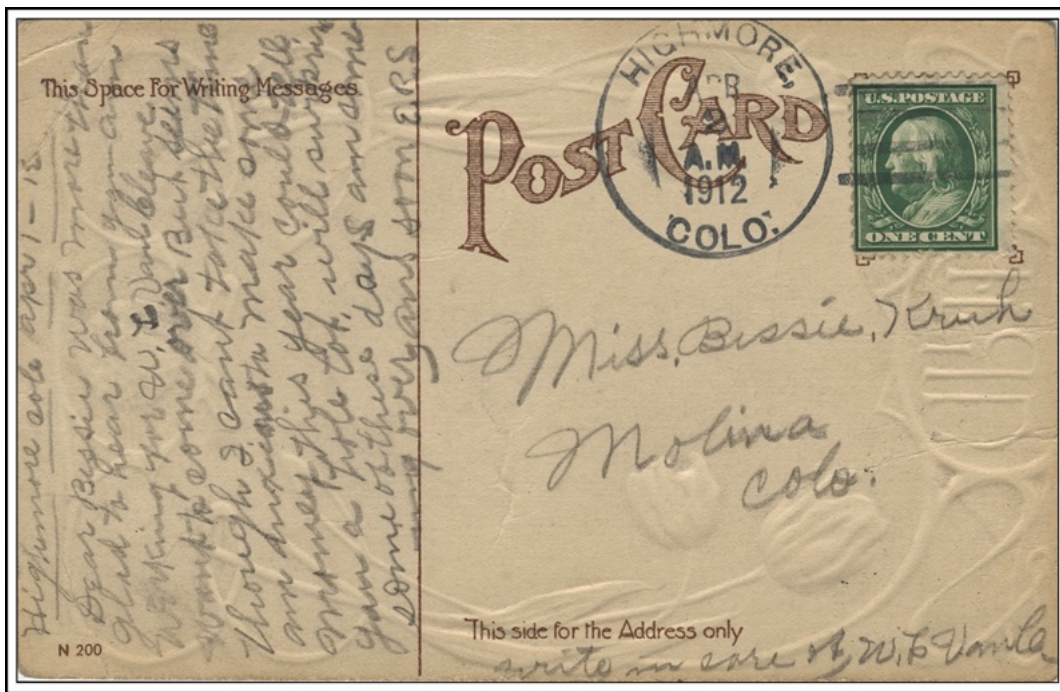 This Space For Writing Messages
Highmore colo apr 1 – 12
Dear Bessie was more than
glad to hear from you am
working for W. L Vancleave
want to come over But seems
though I cant take the time
am trying to make some
money this year could tell
you a hole lot, will surprise
some of these days am coming
over and som
N 200
POST CARD
HIGHMORE,
APR
2
A.M.
1912
COLO.
U.S. POSTAGE
ONE CENT
Miss, Bessie, Kruh
Molina
colo.
This side for the Address only
write in care of W. L Vancle